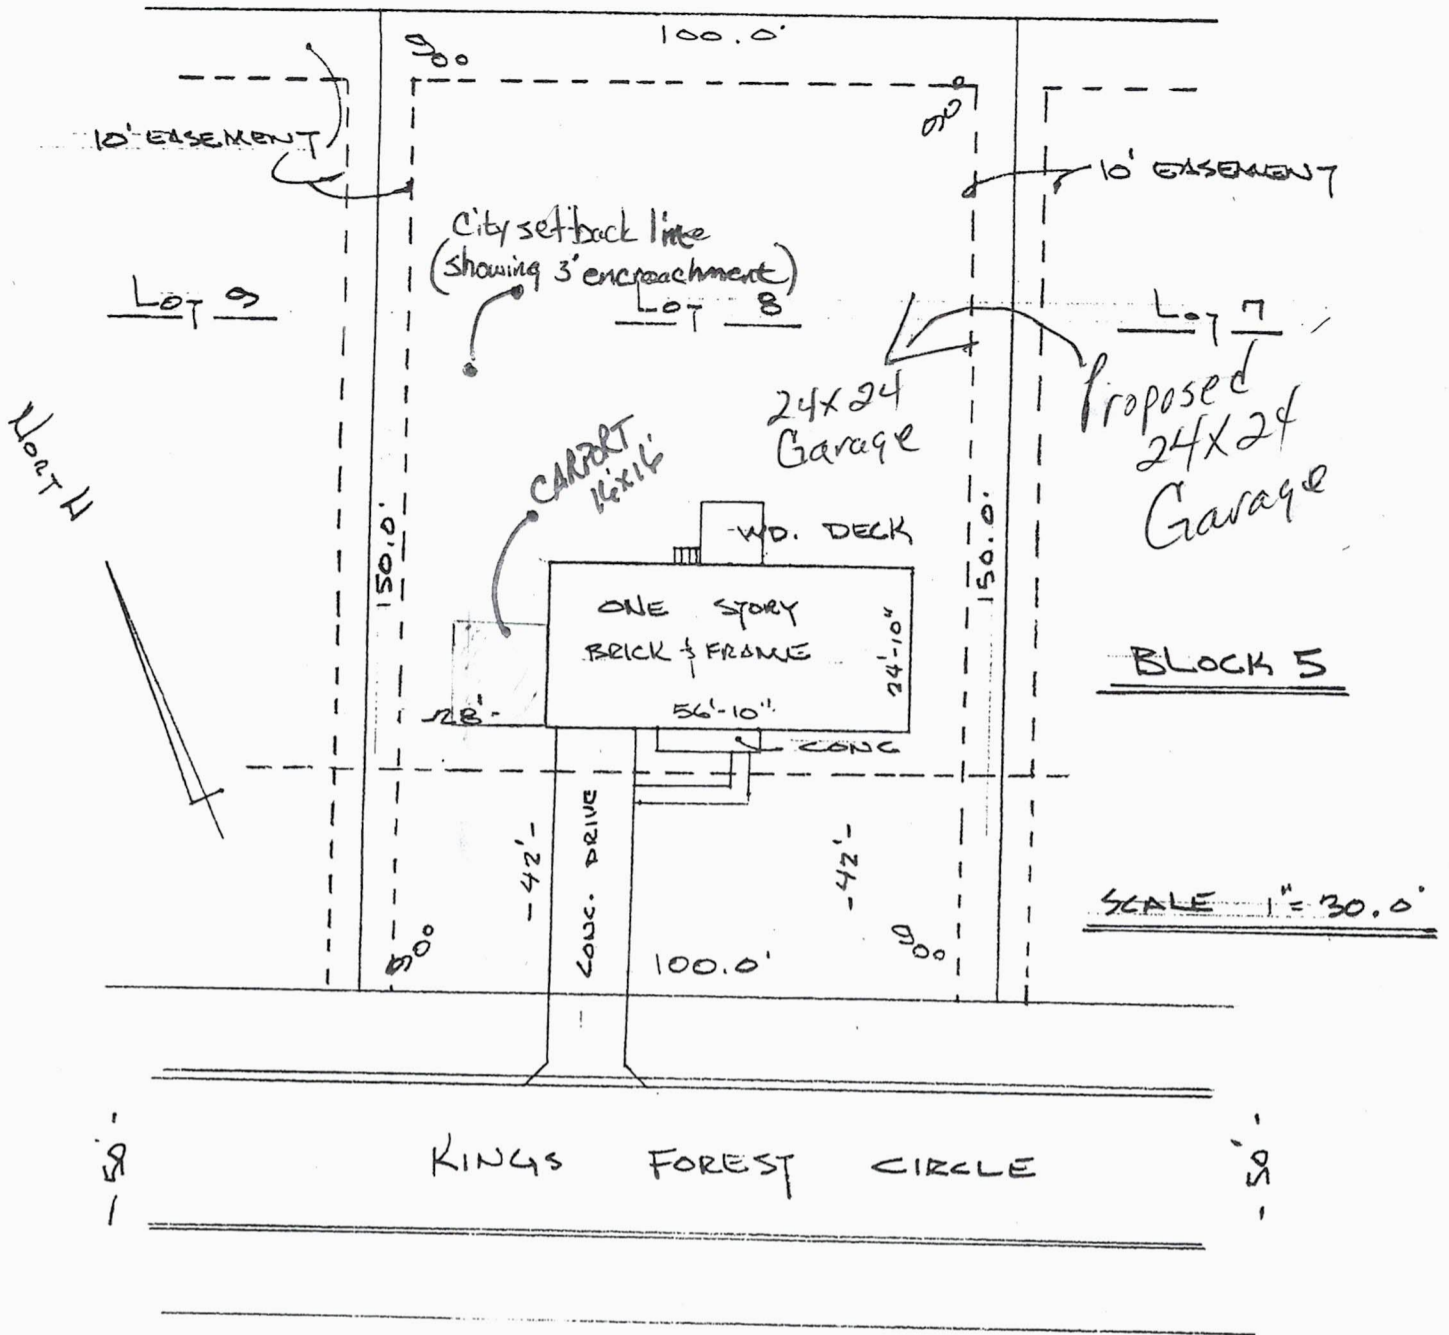 100.0'
90°
90°
10' EASEMENT
10' EASEMENT
City set-back line
(showing 3' encroachment)
LOT 9
LOT 8
LOT 7
24x24
Garage
Proposed
24x24
Garage
NORTH
CARPORT
16x16
150.0'
150.0'
WD. DECK
ONE STORY
BRICK & FRAME
24'-10"
56'-10"
28'-
CONC
BLOCK 5
-42'-
CONC. DRIVE
-42'-
SCALE 1" = 30.0'
90°
90°
100.0'
-50'-
KINGS FOREST CIRCLE
-50'-